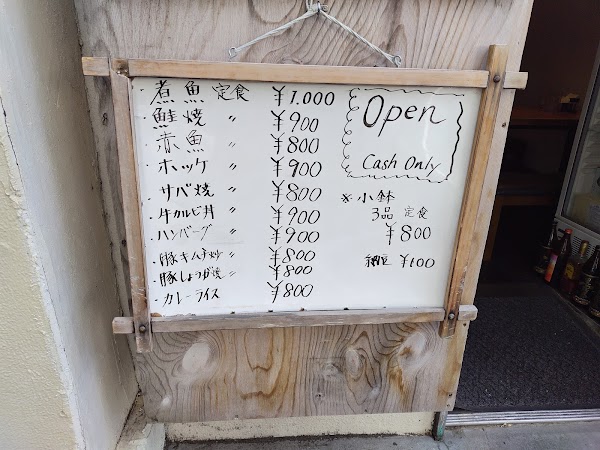 ・煮魚定食 ¥1.000
・鮭焼 〃 ¥900
・赤魚 〃 ¥800
・ホッケ 〃 ¥900
・サバ焼 〃 ¥800
・牛カルビ丼 〃 ¥900
・ハンバーグ 〃 ¥900
・豚キムチ炒 〃 ¥800
・豚しょうが焼 〃 ¥800
・カレーライス ¥800
Open
Cash Only
※小鉢
3品 定食
¥800
納豆 ¥100